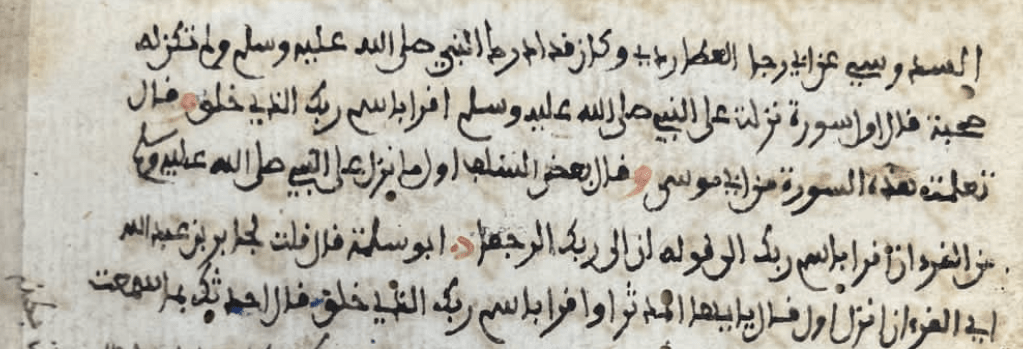 السدوسي عن ابي رجا العطاردي وكان قد ادرك النبي صلى الله عليه وسلم ولم تكن له
صحبة قال اول سورة نزلت على النبي صلى الله عليه وسلم اقرا باسم ربك الذي خلق قال
تعلمت هذه السورة من ابي موسى وقال بعض السلف اول ما نزل على النبي صلى الله عليه وسلم
من القرءان اقرا باسم ربك الى قوله ان الى ربك الرجعا ابو سلمة قال قلت لجابر بن عبد الله
اي القرءان انزل اول قال يايها المدثر او اقرا باسم ربك الذي خلق قال احدثك بما سمعت